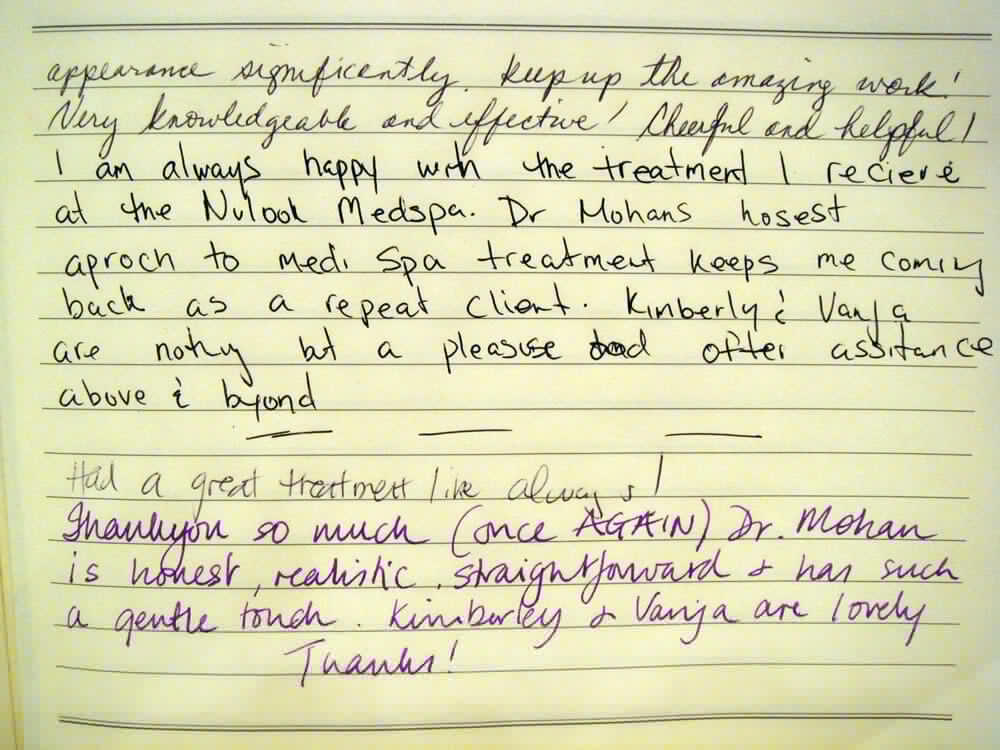 appearance significantly. Keep up the amazing work!
Very knowledgeable and effective! Cheerful and helpful!
I am always happy with the treatment I recieve
at the Nulook Medspa. Dr Mohans hosest
aproch to medi Spa treatment keeps me coming
back as a repeat client. Kimberly & Vanja
are nothy but a pleasuse and offer assitance
above & byond
Had a great treatment like always!
Thankyou so much (once AGAIN) Dr. Mohan
is honest, realistic, straightforward & has such
a gentle touch. Kimberley & Vanja are lovely
Thanks!